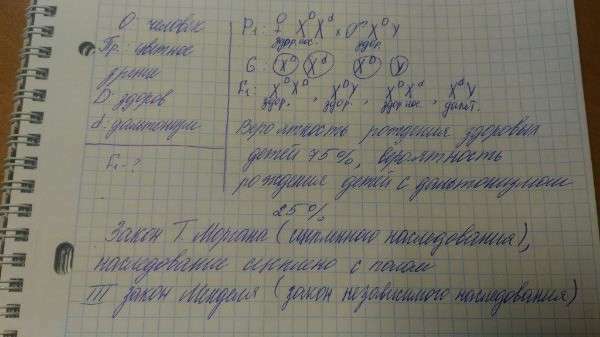 О: человек
Пр.: цветное
зрение
D: здоров
d: дальтонизм
F₁ - ?
P₁: ♀ XᴰXᵈ × ♂ XᴰY
здор. нос. здор.
G: Xᴰ Xᵈ Xᴰ Y
F₁: XᴰXᴰ, XᴰY, XᴰXᵈ, XᵈY
здор. здор. здор. нос. дальт.
Вероятность рождения здоровых
детей 75%, вероятность
рождения детей с дальтонизмом
25%
Закон Т. Моргана (сцепленного наследования),
наследование сцеплено с полом
III закон Менделя (закон независимого наследования)